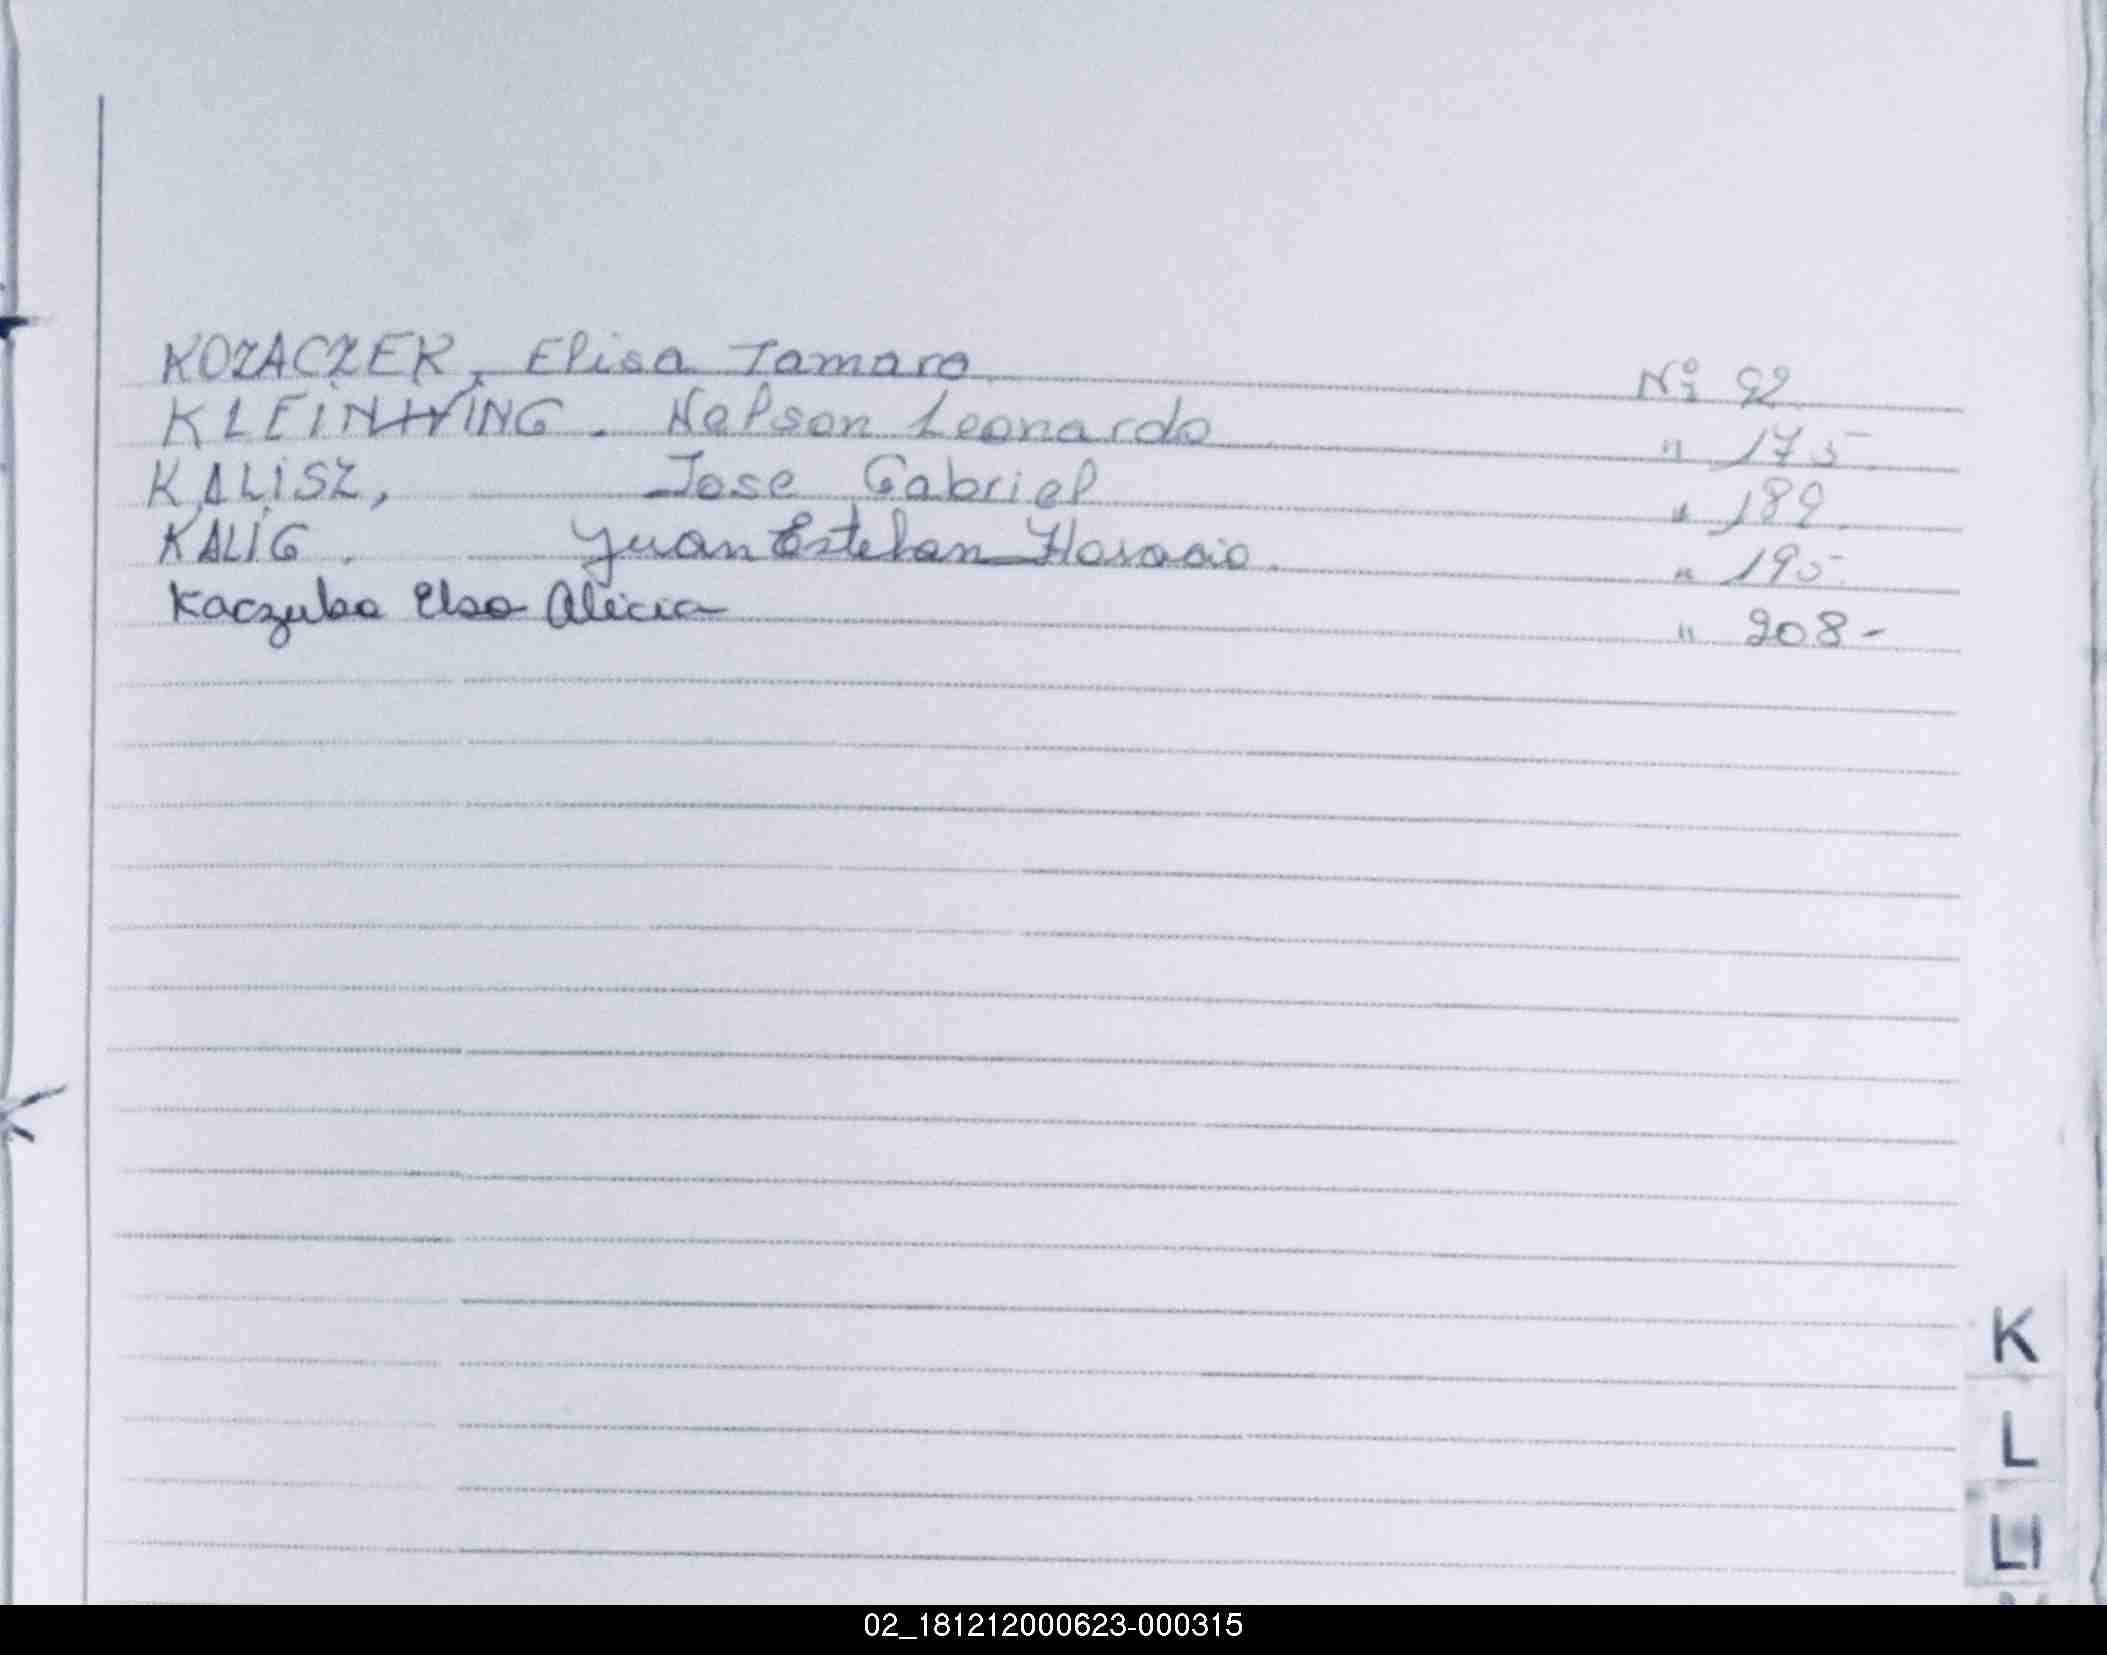 KOZACZEK, Elisa Tamara Nº 92
KLEINHVING. Nelson Leonardo " 175-
KALISZ, Jose Gabriel " 189.
KALIG. Juan Esteban Horacio. " 195-
Kaczuba Elsa Alicia " 208-
K
L
Ll
02_181212000623-000315